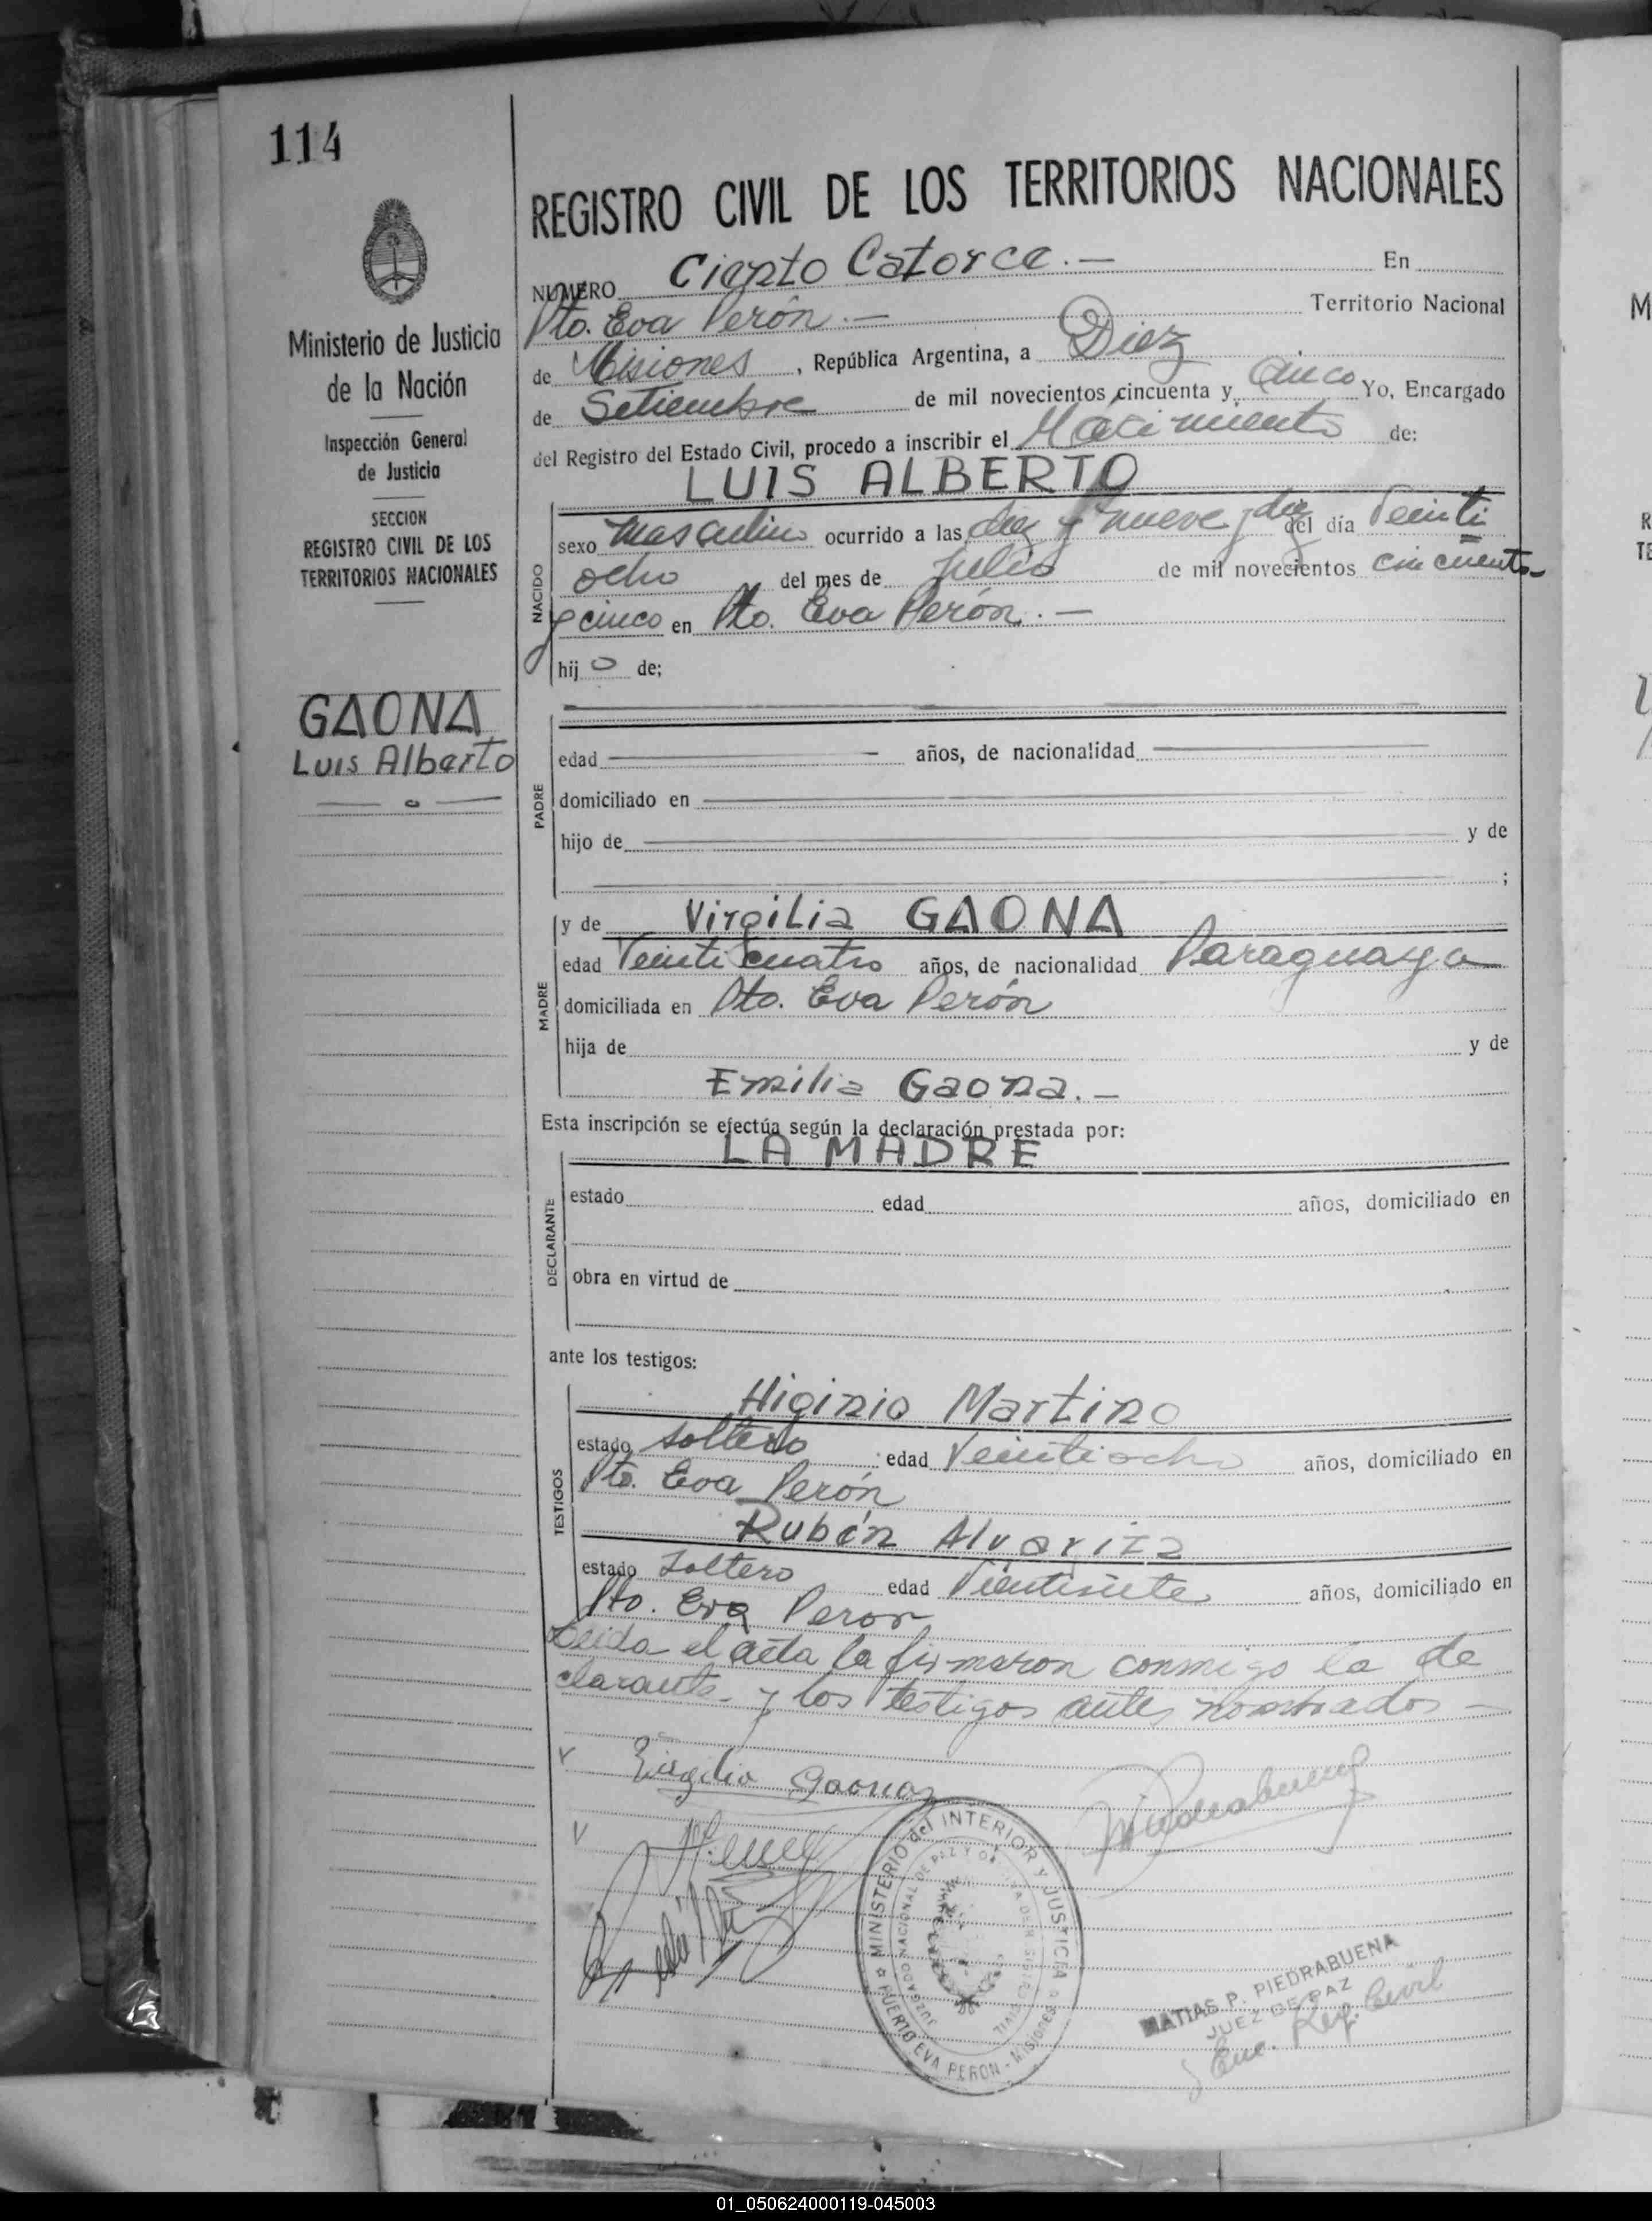 114
Ministerio de Justicia
de la Nación
Inspección General
de Justicia
SECCION
REGISTRO CIVIL DE LOS
TERRITORIOS NACIONALES
GAONA
Luis Alberto
REGISTRO CIVIL DE LOS TERRITORIOS NACIONALES
NUMERO Ciento Catorce.— En
Pto. Eva Perón.— Territorio Nacional
de Misiones, República Argentina, a Diez
de Setiembre de mil novecientos cincuenta y Cinco Yo, Encargado
del Registro del Estado Civil, procedo a inscribir el Nacimiento de:
LUIS ALBERTO
NACIDO
sexo masculino ocurrido a las diez y nueve y diez del día Veinti
ocho del mes de Julio de mil novecientos cincuenta
y cinco en Pto. Eva Perón.—
hijo de;
PADRE
edad años, de nacionalidad
domiciliado en
hijo de y de
;
MADRE
y de Virgilia GAONA
edad Veinticuatro años, de nacionalidad Paraguaya
domiciliada en Pto. Eva Perón
hija de y de
Emilia Gaona.—
Esta inscripción se efectúa según la declaración prestada por:
LA MADRE
DECLARANTE
estado edad años, domiciliado en
obra en virtud de
ante los testigos:
TESTIGOS
Higinio Martino
estado soltero edad Veintiocho años, domiciliado en
Pto. Eva Perón
Rubén Alvariza
estado soltero edad Vientisiete años, domiciliado en
Pto. Eva Peron
Leida el acta la firmaron conmigo la de
clarante y los testigos antes nombrados —
Virgilia Gaona
MINISTERIO del INTERIOR Y JUSTICIA
JUZGADO NACIONAL DE PAZ Y OFICINA DE REGISTRO CIVIL
PUERTO EVA PERON - Misiones
MATIAS P. PIEDRABUENA
JUEZ DE PAZ
y Enc. Reg. Civil
01_050624000119-045003